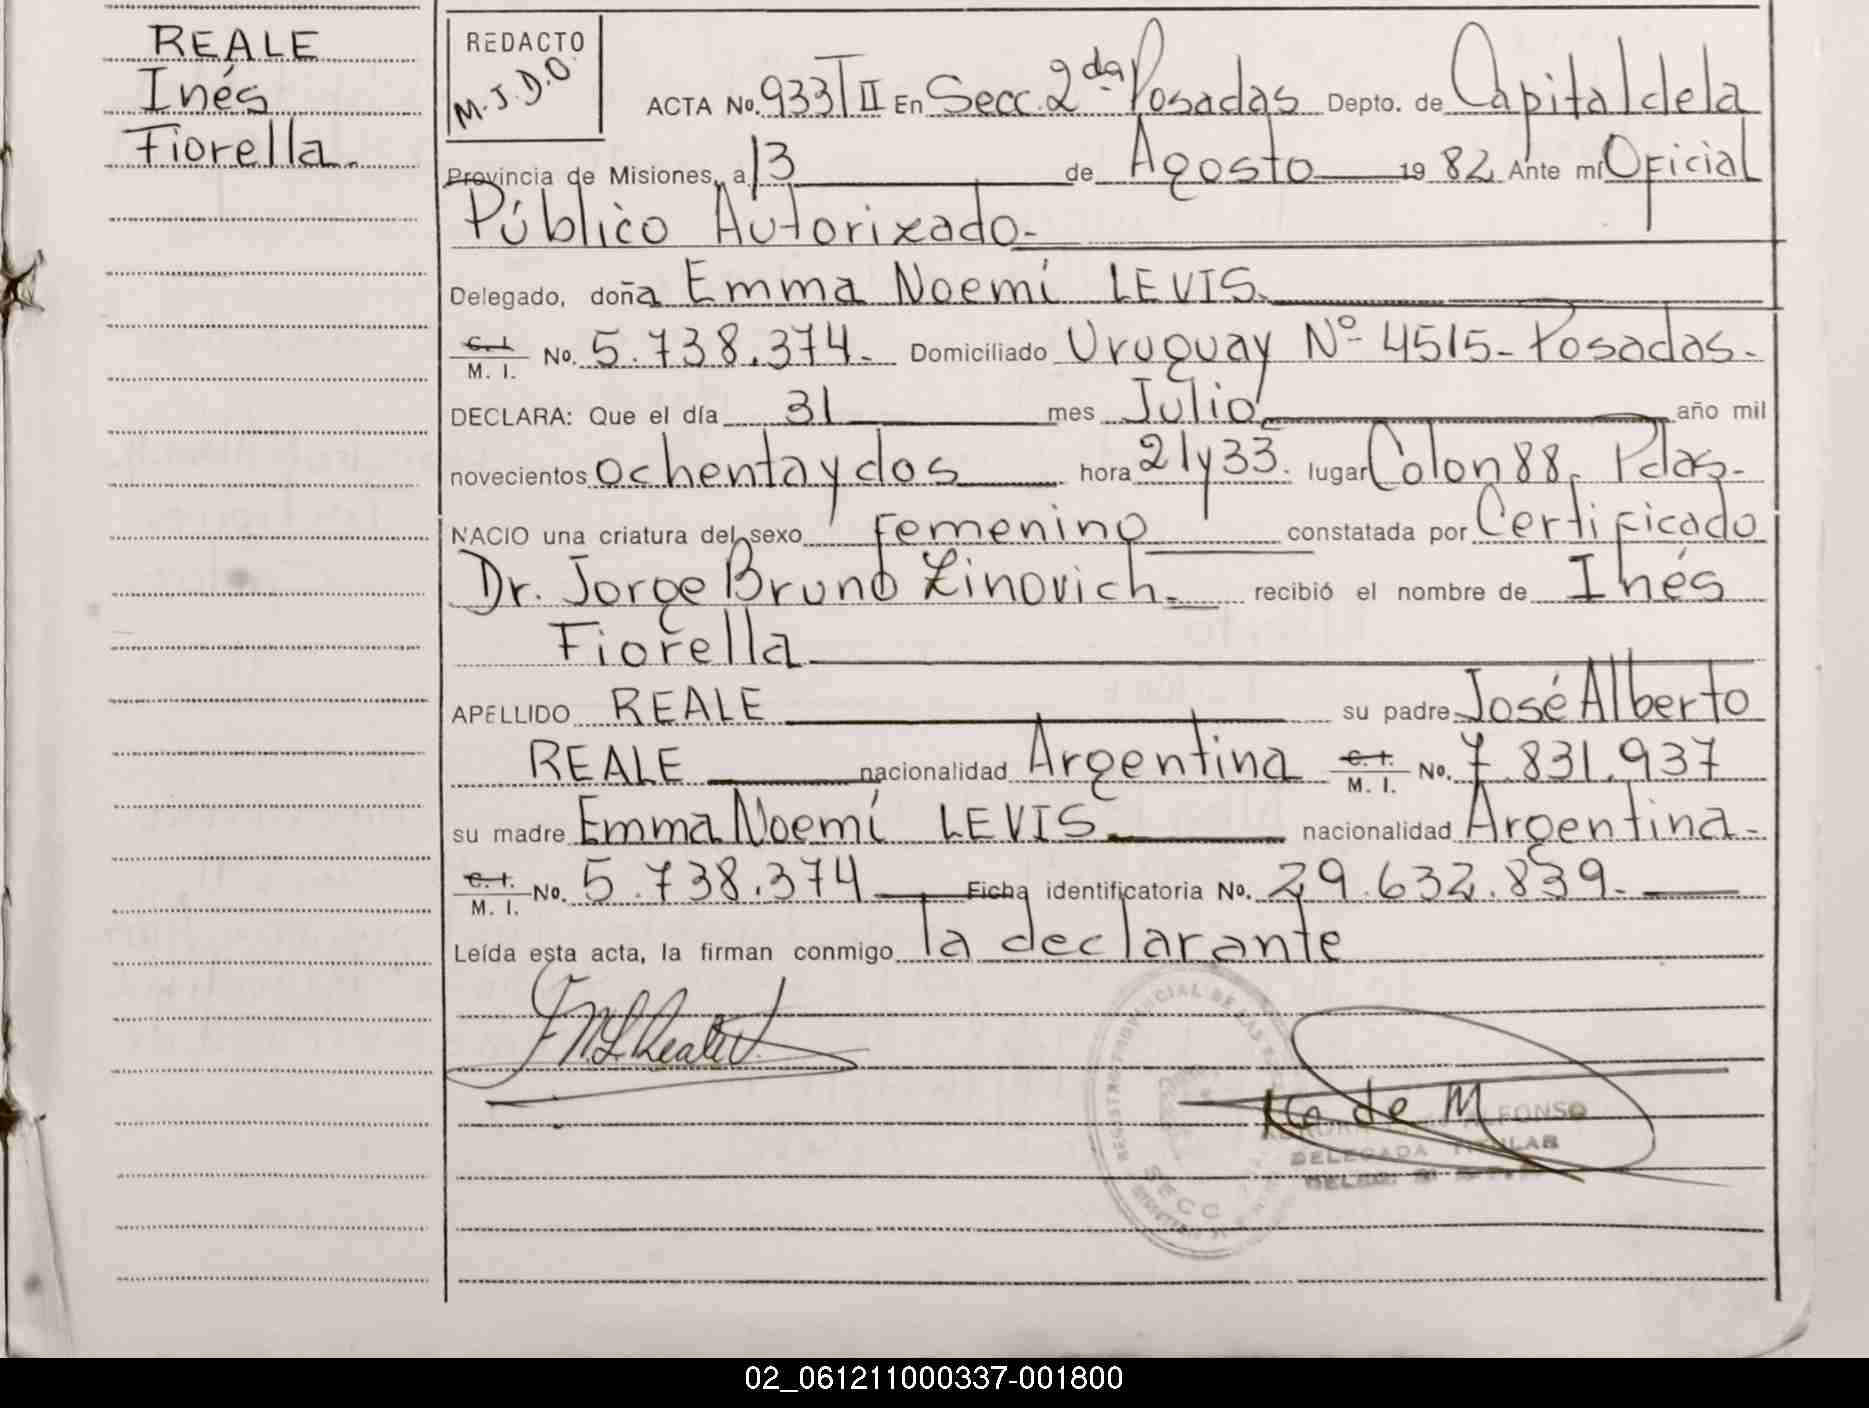 REALE
Inés
Fiorella.
REDACTO
M.J.D.O.
ACTA No. 933 T II En Secc. 2da. Posadas Depto. de Capital de la
Provincia de Misiones, a 13 de Agosto 1982 Ante mí Oficial
Público Autorizado.-
Delegado, doña Emma Noemí LEVIS.
C. I. M. I. No. 5.738.374.- Domiciliado Uruguay Nº 4515- Posadas.-
DECLARA: Que el día 31 mes Julio año mil
novecientos ochenta y dos hora 21 y 33. lugar Colon 88, Pdas.-
NACIO una criatura del sexo femenino constatada por Certificado
Dr. Jorge Bruno Zinovich.- recibió el nombre de Inés
Fiorella
APELLIDO REALE su padre José Alberto
REALE nacionalidad Argentina C. I. M. I. No. 7.831.937
su madre Emma Noemí LEVIS nacionalidad Argentina.-
C. I. M. I. No. 5.738.374 Ficha identificatoria No. 29.632.839.-
Leída esta acta, la firman conmigo la declarante
de M
ALFONSO
DELEGADA TITULAR
SECC
02_061211000337-001800